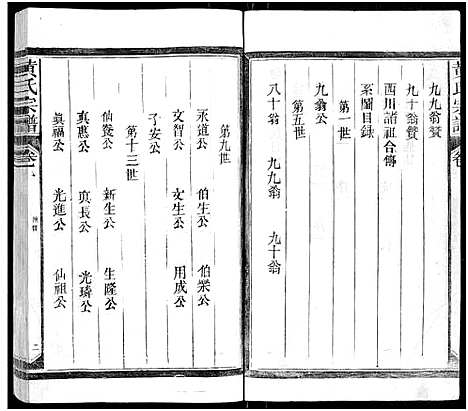 黃氏宗譜 卷
九九翁贊
九十翁贊
西川諸祖合傳
系圖目錄
第一世
九翁公
第五世
八十翁 九九翁 九十翁
第九世
永道公 伯生公 伯榮公
文智公 文生公 用成公
子安公
第十三世
仙養公 新生公 生隆公
真惠公 真長公 光璘公
真福公 光進公 仙祖公
黃氏宗譜 卷一
二